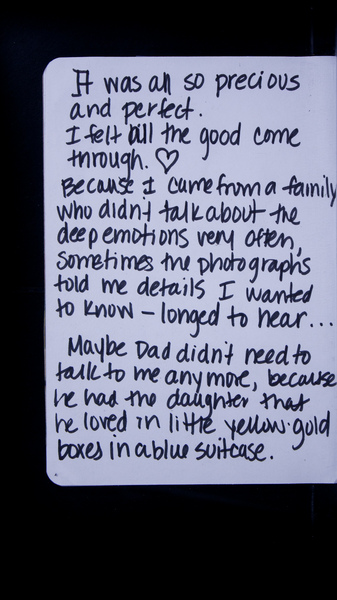 It was all so precious
and perfect.
I felt all the good come
through. ♡
Because I came from a family
who didn't talk about the
deep emotions very often,
sometimes the photographs
told me details I wanted
to know – longed to hear...
Maybe Dad didn't need to
talk to me anymore, because
he had the daughter that
he loved in little yellow-gold
boxes in a blue suitcase.